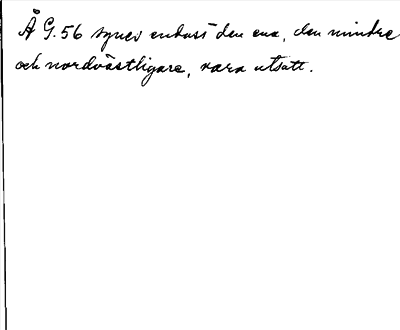 Å G.56 synes endast den ena, den mindre
och nordvästligare, vara utsatt.